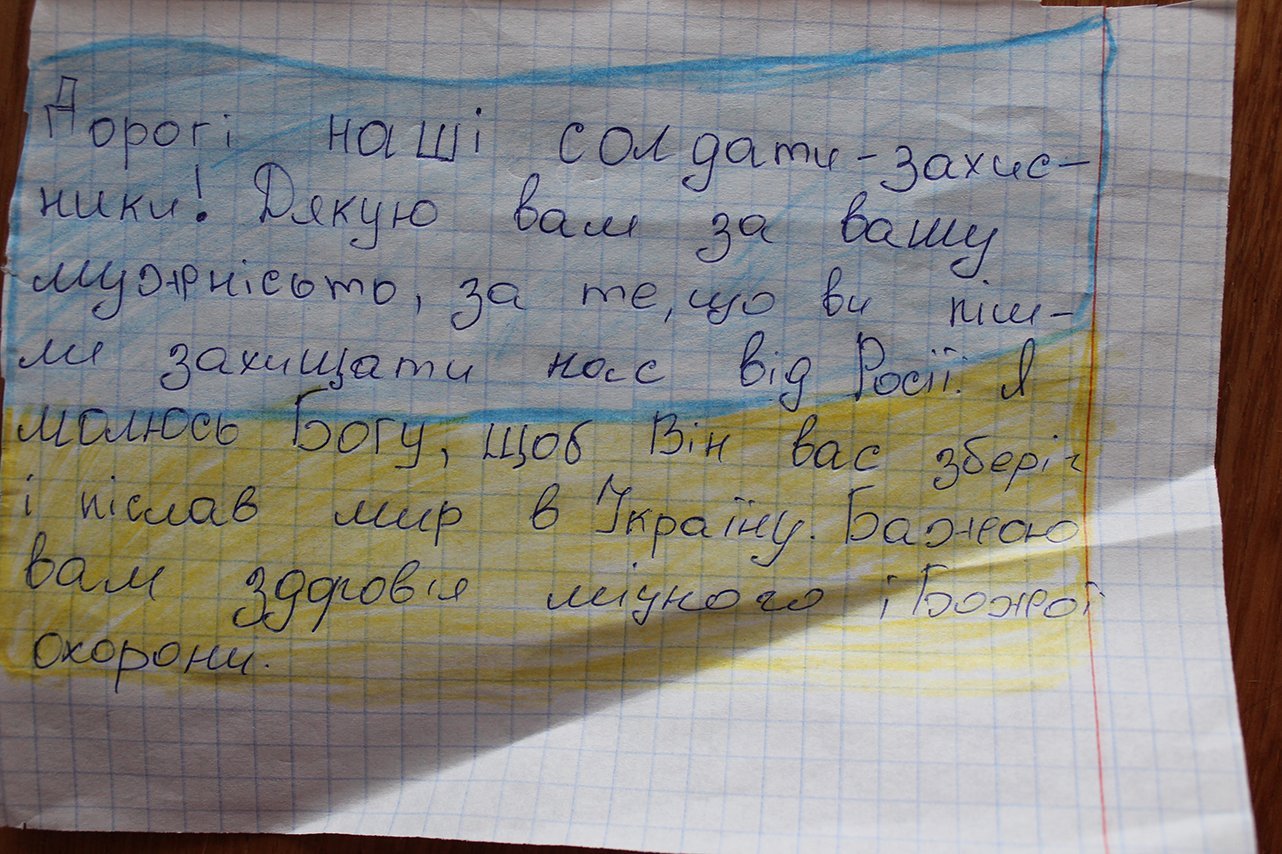 Дорогі наші солдати-захис-
ники! Дякую вам за вашу
мужнісьть, за те, що ви піш-
ли захищати нас від Росії. Я
молюсь Богу, щоб Він вас зберіг
і післав мир в Україну. Бажаю
вам здоров'я міцного і Божої
охорони.